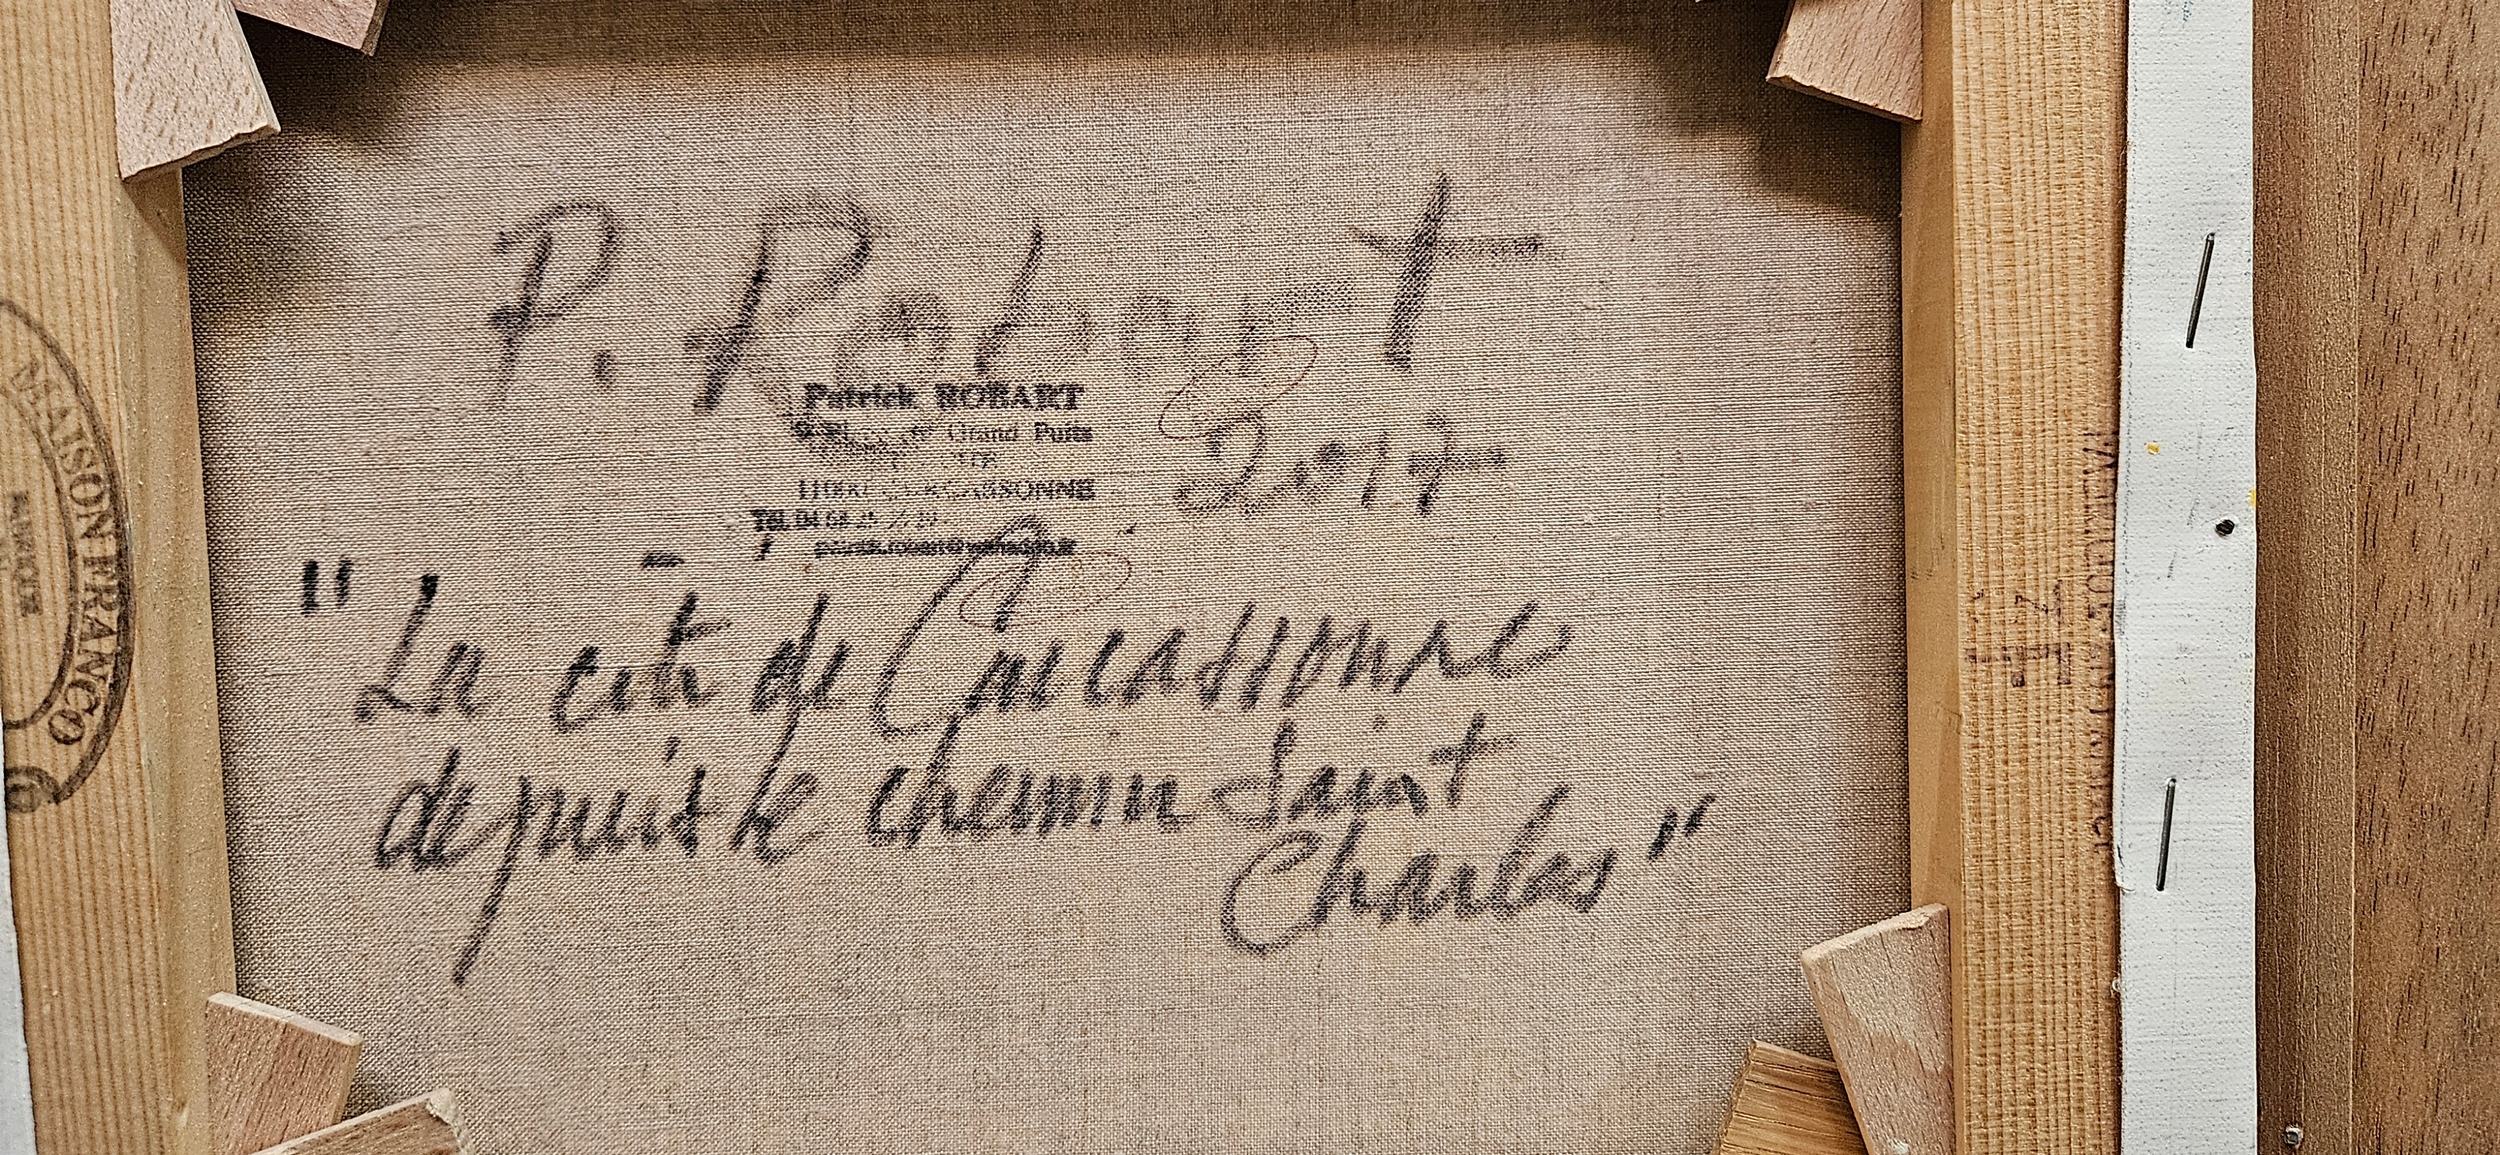 P. Robart
Patrick ROBART
Grand Puits
CARCASSONNE
Tél. 04 68 25
2017
"La cité de Carcassonne
depuis le chemin Saint
Charles"
MAISON FRANCO